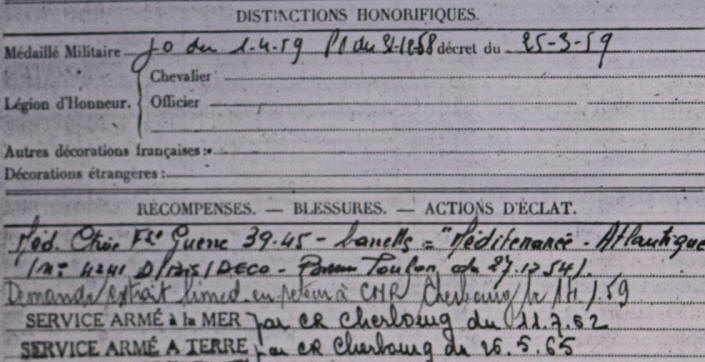 DISTINCTIONS HONORIFIQUES.
Médaillé Militaire JO du 1-4-59 du 31-12-58 décret du 25-3-59
Chevalier
Légion d'Honneur. Officier
Autres décorations françaises :
Décorations étrangères :
RÉCOMPENSES. — BLESSURES. — ACTIONS D'ÉCLAT.
Méd. Guerre 39.45 - barrette = "Méditerranée - Atlantique
DECO - Toulon du 27.12.54).
Demande extrait en retour à CMR Cherbourg le 59
SERVICE ARMÉ à la MER par CR Cherbourg du 11.7.62
SERVICE ARMÉ A TERRE par CR Cherbourg du 26.5.65